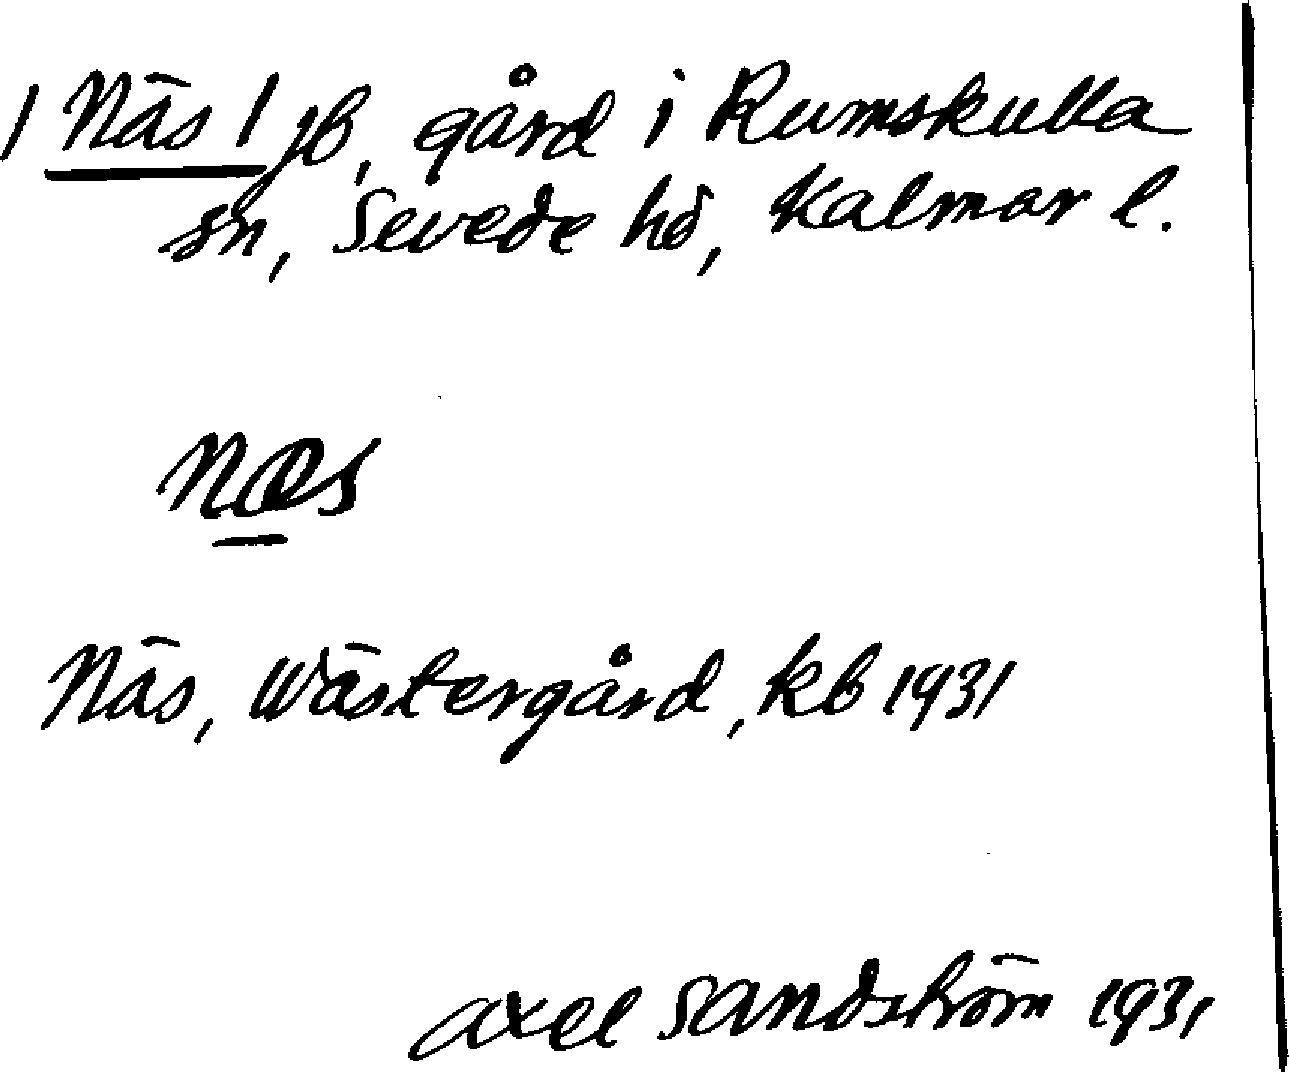 / Näs / jb, gård i Rumskulla
sn, Sevede hd, Kalmar l.
næs
Näs, Wästergård, kb 1931
Axel Sandström 1931